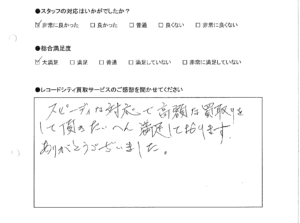 ●スタッフの対応はいかがでしたか？
☑非常に良かった □良かった □普通 □良くない □非常に良くない
●総合満足度
☑大満足 □満足 □普通 □満足していない □非常に満足していない
●レコードシティ買取サービスのご感想を聞かせてください
スピーディな対応で高額な買取りを
して頂きたいへん満足しております。
ありがとうございました。